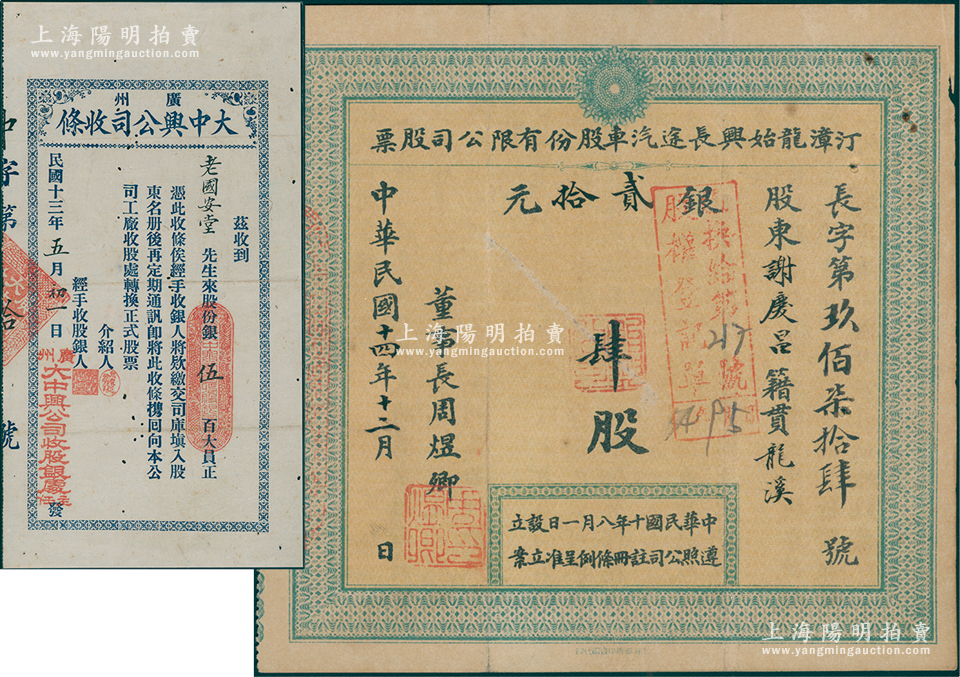 上海陽明拍賣
www.yangmingauction.com
廣州
大中興公司收條
茲收到
老國安堂 先生來股份銀 伍 百大員正
憑此收條俟經手收銀人將欵繳交司庫塡入股
東名册後再定期通訊卽將此收條携回向本公
司工廠收股處轉換正式股票
介紹人
經手收股銀人
民國十三年五月初一日
發
字第 拾 號
廣州
大中興公司收股銀處
汀漳龍始興長途汽車股份有限公司股票
長字第玖佰柒拾肆號
股東謝慶昌 籍貫龍溪
銀貳拾元
肆股
董事長周煜卿
中華民國十四年十二月 日
換給第217號
股權登記單
中華民國十年八月一日設立
遵照公司註冊條例呈准立案
上海陽明拍賣
www.yangmingauction.com
上海陽明拍賣
www.yangmingauction.com